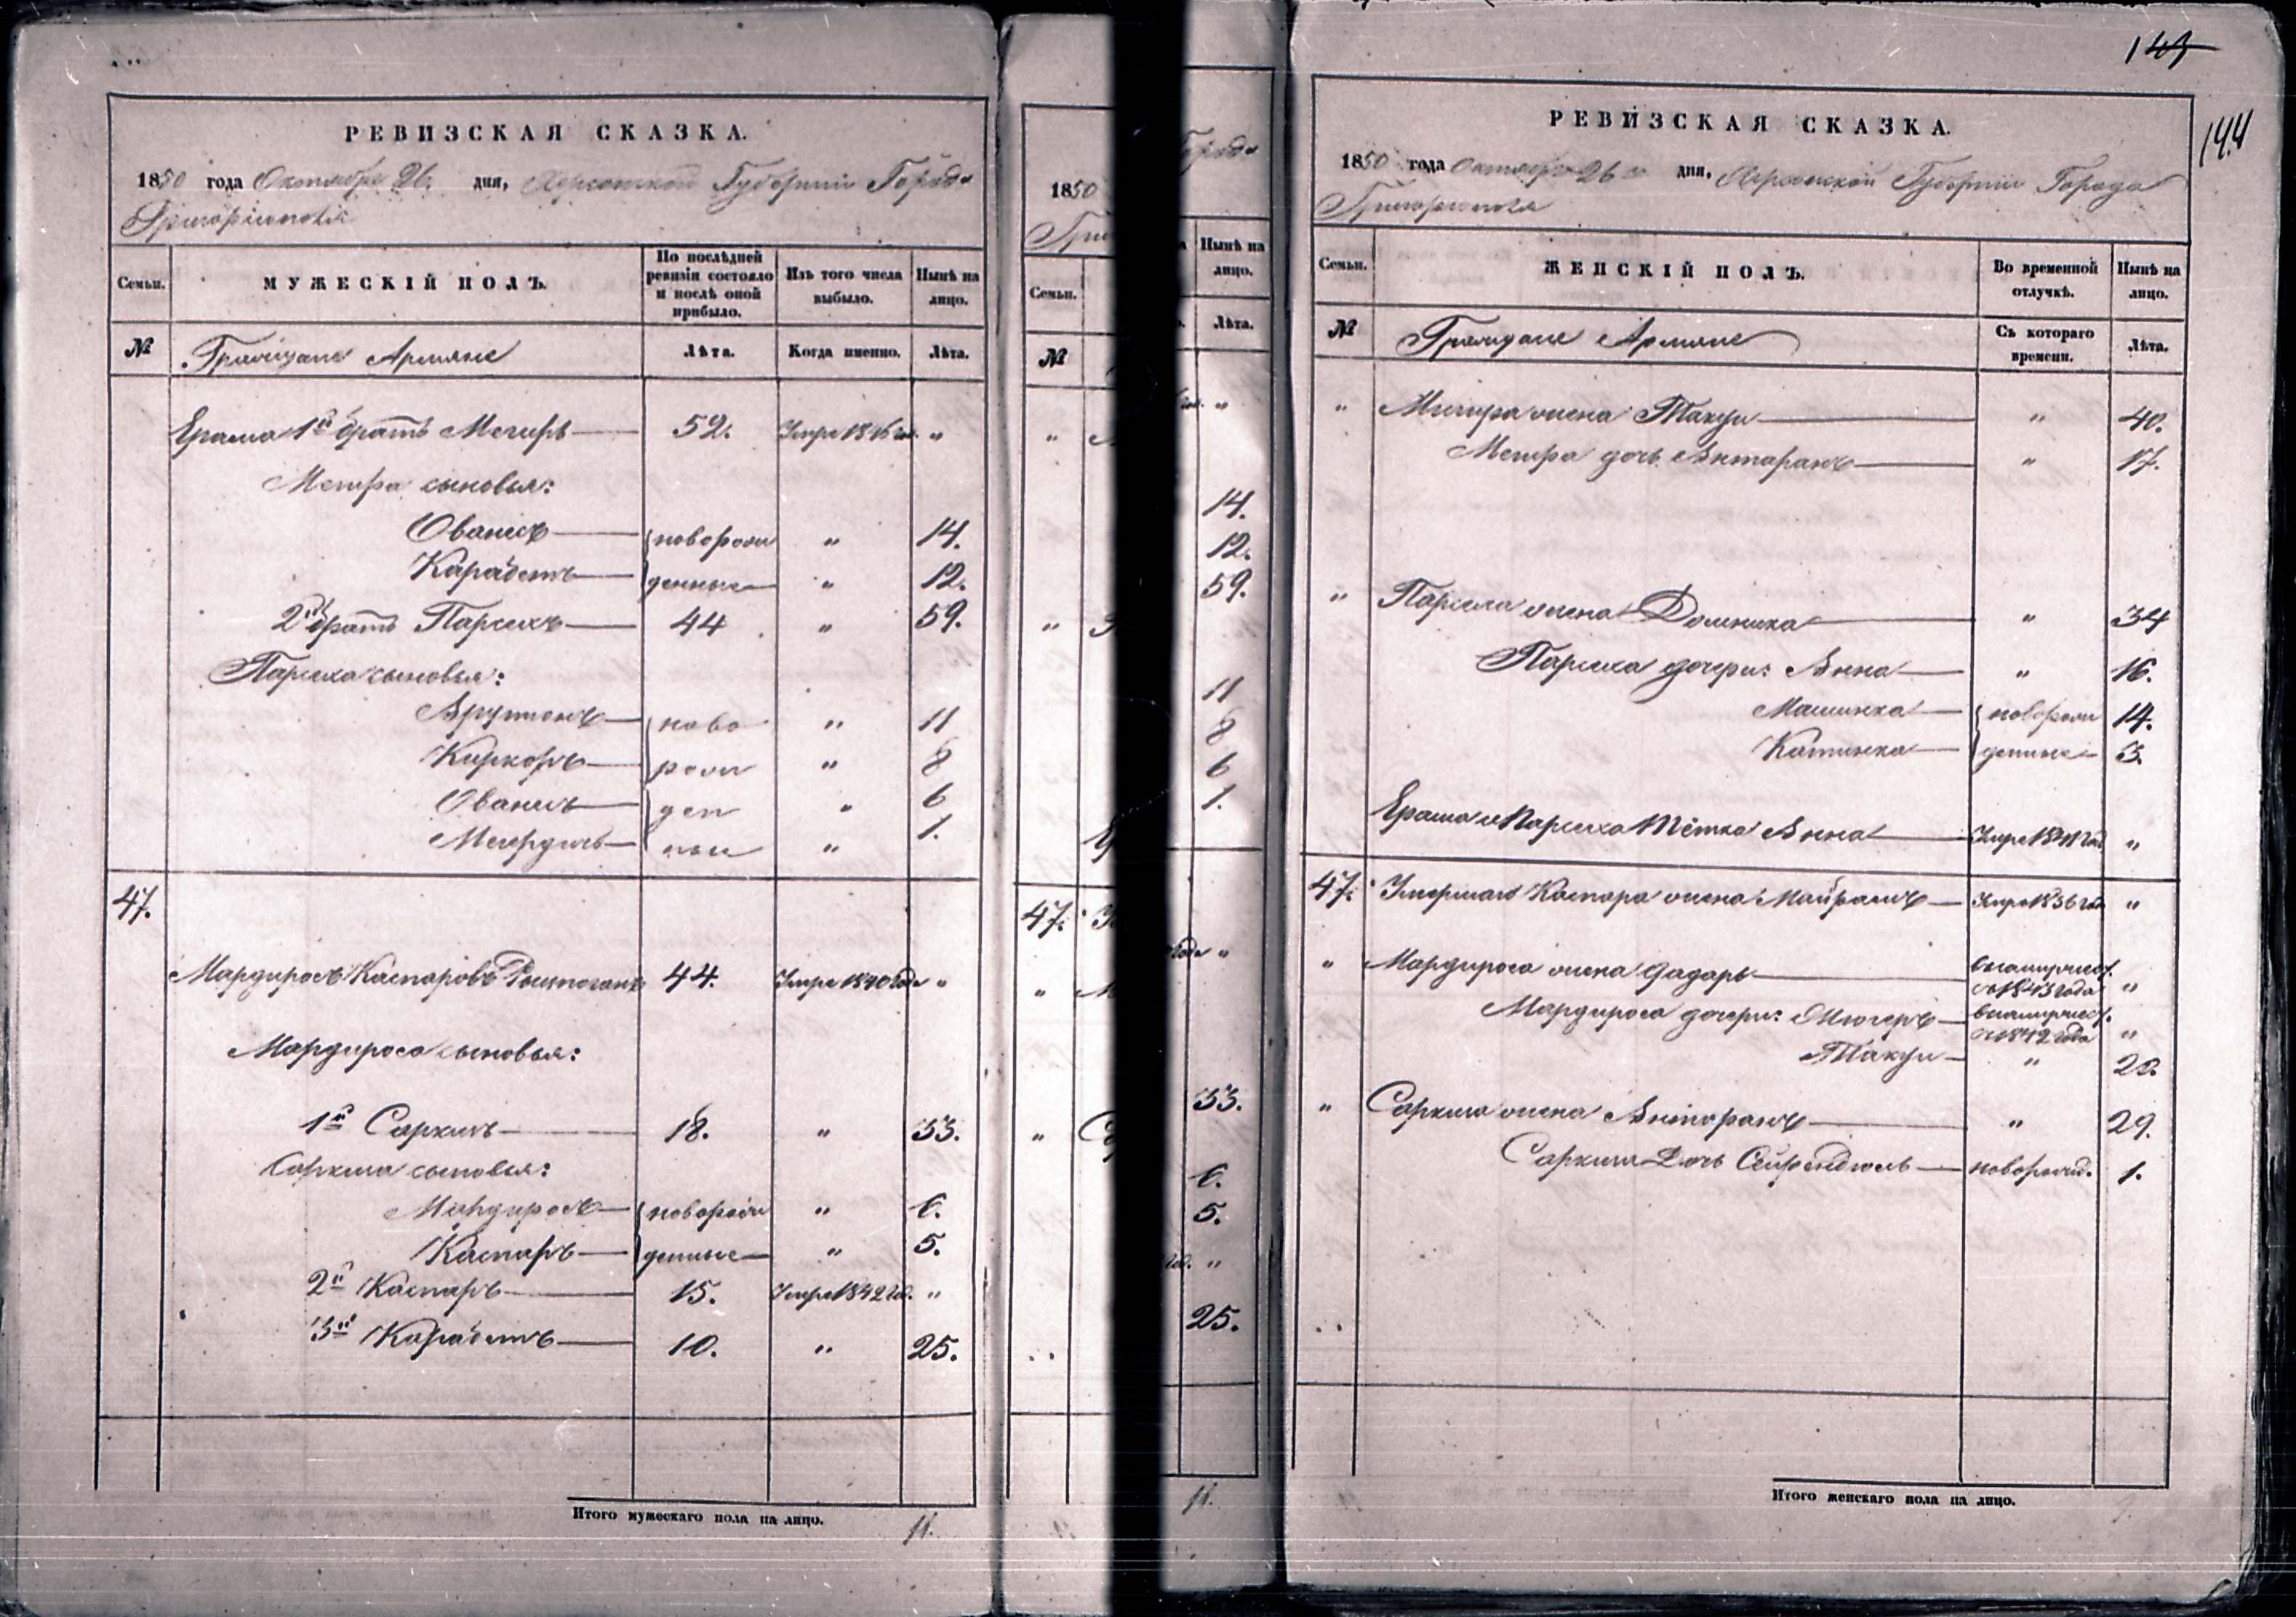 РЕВИЗСКАЯ СКАЗКА.
1850 года Октября 26 дня, Херсонской Губернии Города
Григоріополя
Семьи.
МУЖЕСКІЙ ПОЛЪ.
По послѣдней ревизіи состояло и послѣ оной прибыло.
Изъ того числа выбыло.
Нынѣ на лицо.
№ Граждане Армяне Лѣта. Когда именно. Лѣта.
1й братъ Мегиръ 52. Умре 1846 год. "
Мегира сыновья:
Ованесъ новорож 14.
Карабетъ денные " 12.
2й братъ Парсихъ 44 " 59.
Парсиха сыновья:
Арутюнъ ново " 11
Киркоръ рож " 8
Ованесъ ден " 6
ные " 1.
47.
Мардиросъ Каспаровъ 44. Умре 1840 года "
Мардироса сыновья:
1й Саркисъ 18. " 33.
Саркиса сыновья:
Мардиросъ новорож " 6.
Каспаръ денные " 5.
2й Каспаръ 15. Умре 1842 год. "
3й Карабетъ 10. " 25.
Итого мужескаго пола на лицо. 11.
1850
Семьи.
№
47.
Нынѣ на лицо.
Лѣта.
14.
12.
59.
11
8
6
1.
33.
6.
5.
25.
11.
143
144
РЕВИЗСКАЯ СКАЗКА.
1850 года Октября 26 дня, Херсонской Губерніи Города
Григоріополя
Семьи.
ЖЕНСКІЙ ПОЛЪ.
Во временной отлучкѣ.
Нынѣ на лицо.
№ Граждане Армяне Съ котораго времени. Лѣта.
" Мигира жена Такуи " 40.
Мегира дочь Антарамъ " 17.
" жена Доминика " 34
Парсиха дочери: Анна " 16.
Машинка новорож 14.
Катинка денные 3.
и Парсиха тётка Анна Умре 1841 год "
47. Умершаго Каспара жена Майрамъ Умре 1836 год "
" Мардироса жена
съ 1843 года "
Мардироса дочери:
съ 1842 года "
Такуи " 22.
" Саркиса жена Антарамъ " 29.
Саркиса дочь новорожд. 1.
Итого женскаго пола на лицо.